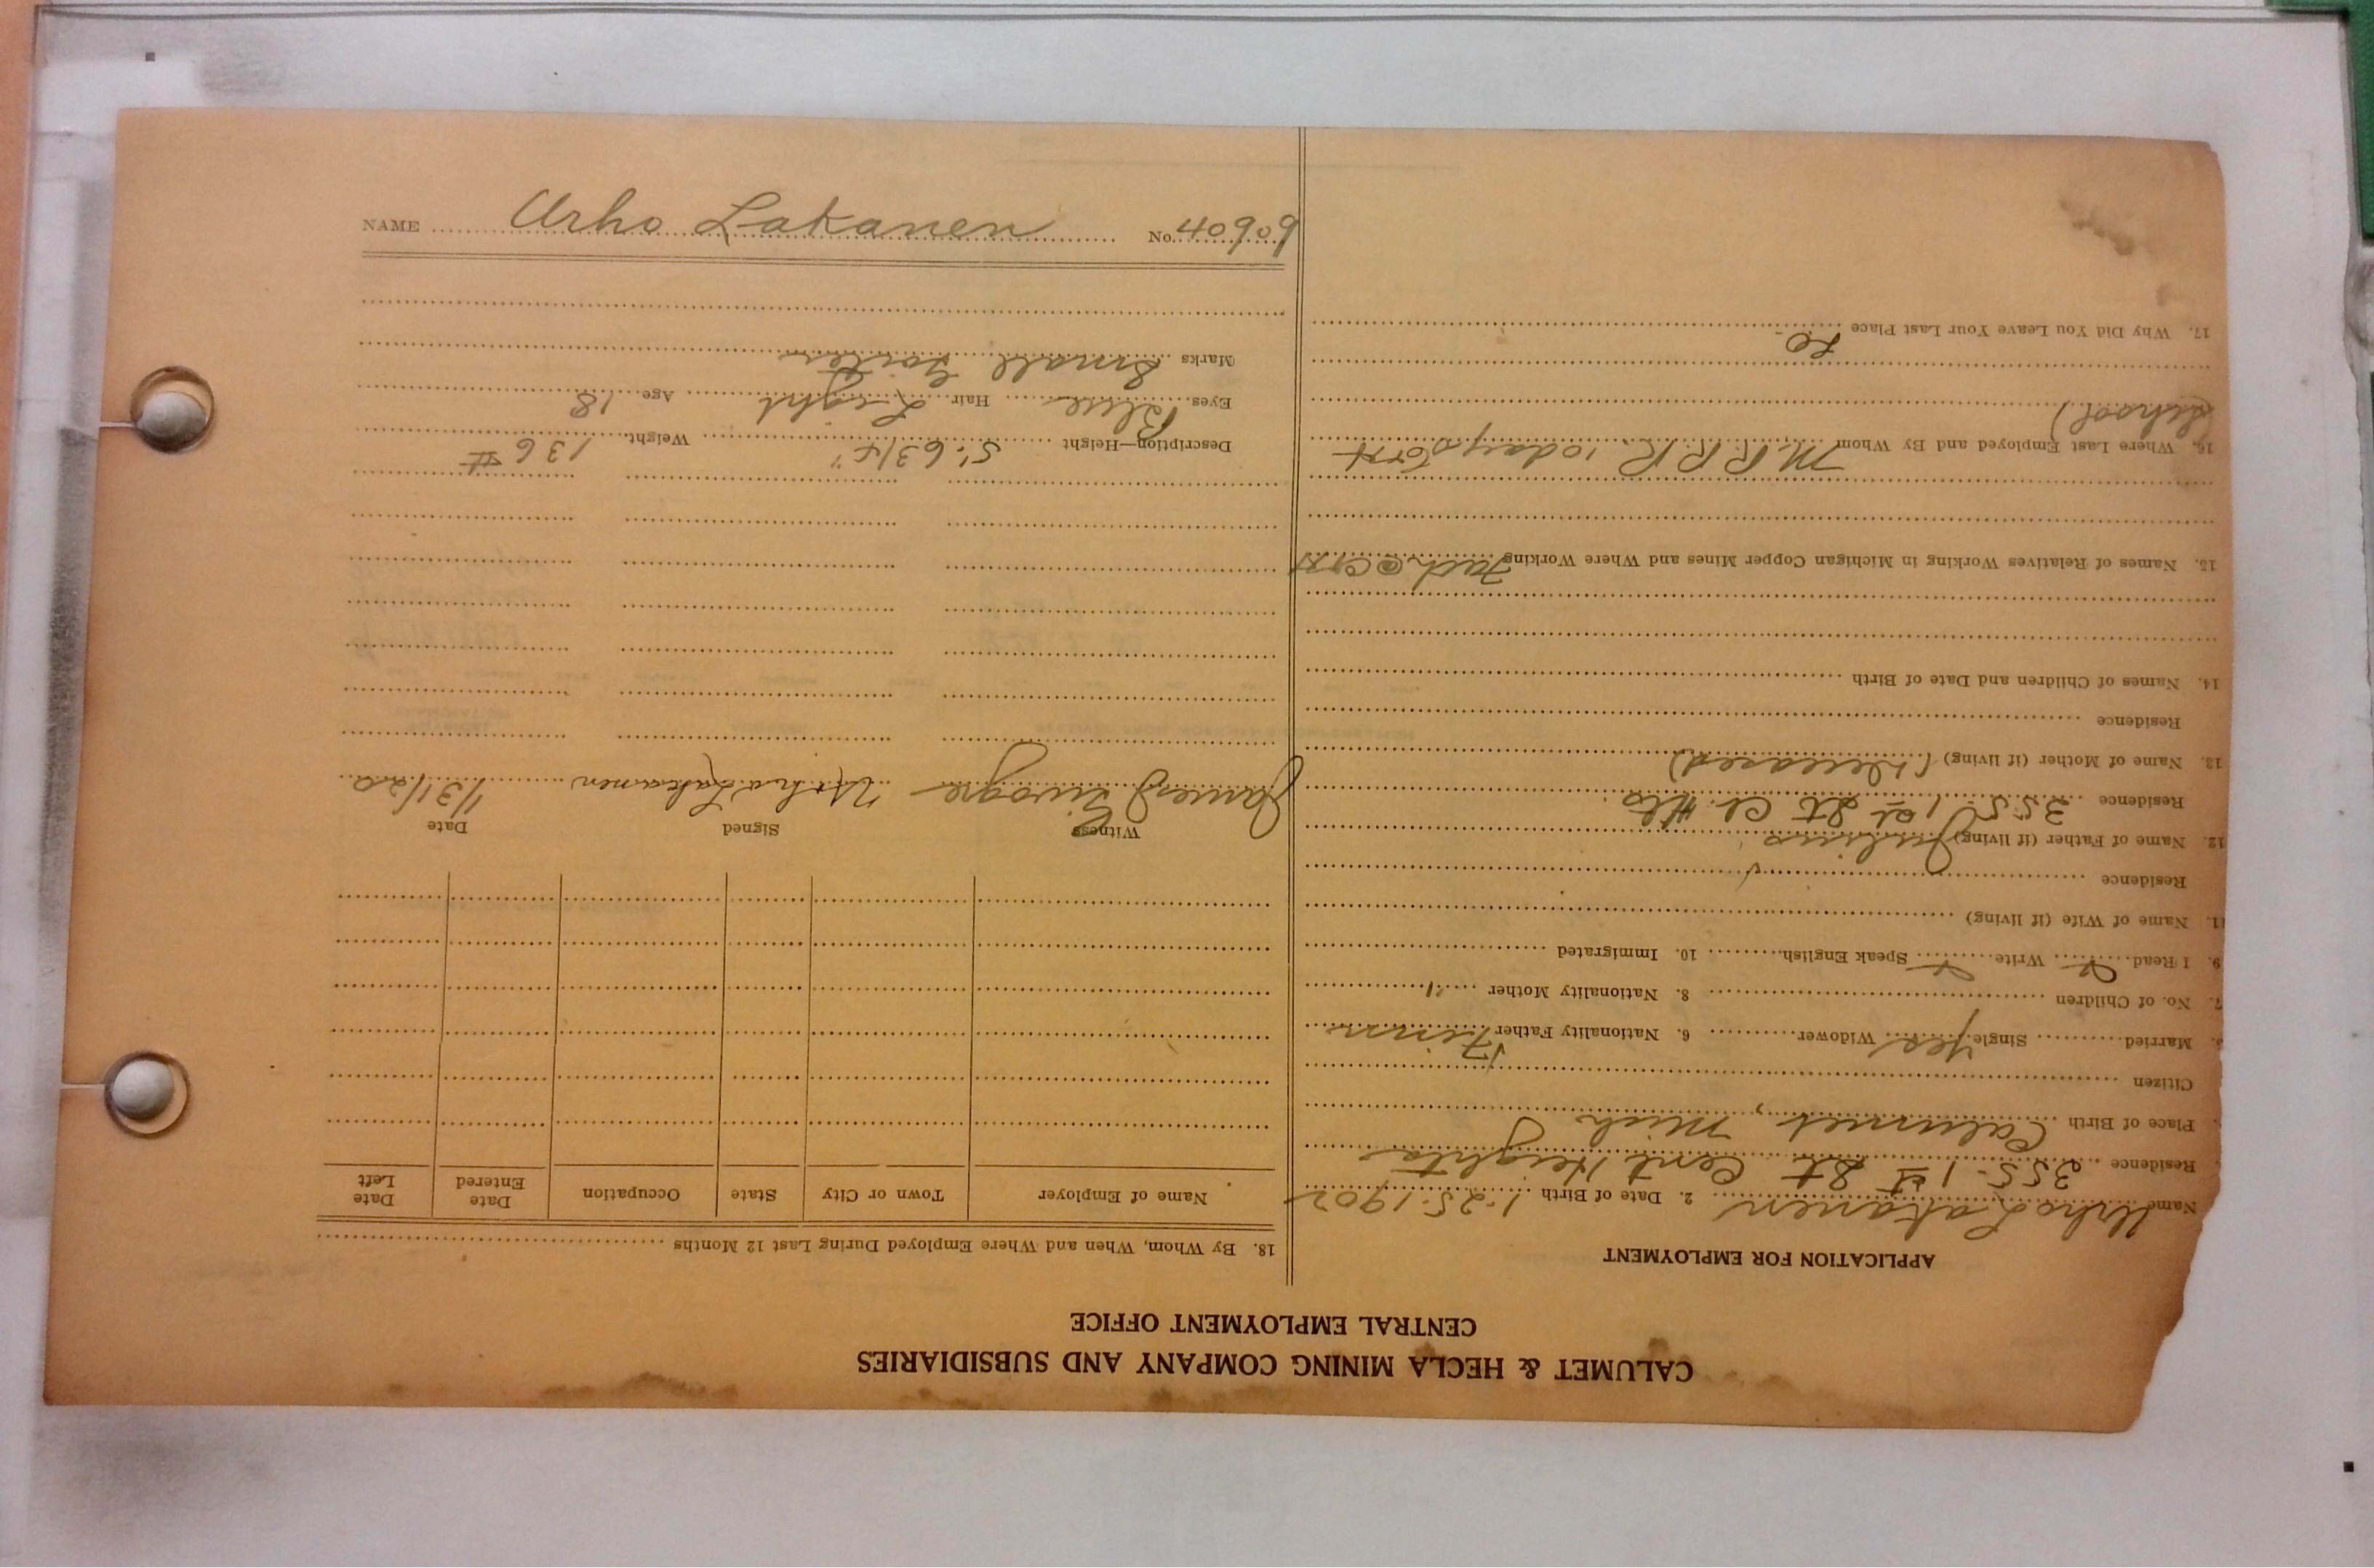 CALUMET & HECLA MINING COMPANY AND SUBSIDIARIES
CENTRAL EMPLOYMENT OFFICE
APPLICATION FOR EMPLOYMENT
Name Urho Lakanen 2. Date of Birth 1-25-1902
Residence 355-1st St Cent Heights
Place of Birth Calumet, Mich
Citizen
Married Single Yes Widower 6. Nationality Father Finn
7. No. of Children 8. Nationality Mother "
9. I Read Write Speak English 10. Immigrated
11. Name of Wife (if living)
Residence
12. Name of Father (if living) Julius
Residence 355-1st St C. Hts.
13. Name of Mother (if living) (deceased)
Residence
14. Names of Children and Date of Birth
15. Names of Relatives Working in Michigan Copper Mines and Where Working Fath @
16. Where Last Employed and By Whom M.R.R.R. 10 days
(School)
17. Why Did You Leave Your Last Place
18. By Whom, When and Where Employed During Last 12 Months
Name of Employer Town or City State Occupation Date Entered Date Left
Witness Signed Date
James Urho Lakanen 1/31/20
Description—Height 5' 6 3/4" Weight 136 #
Eyes Blue Hair Light Age 18
Marks Small Goiter
NAME Urho Lakanen No. 40909